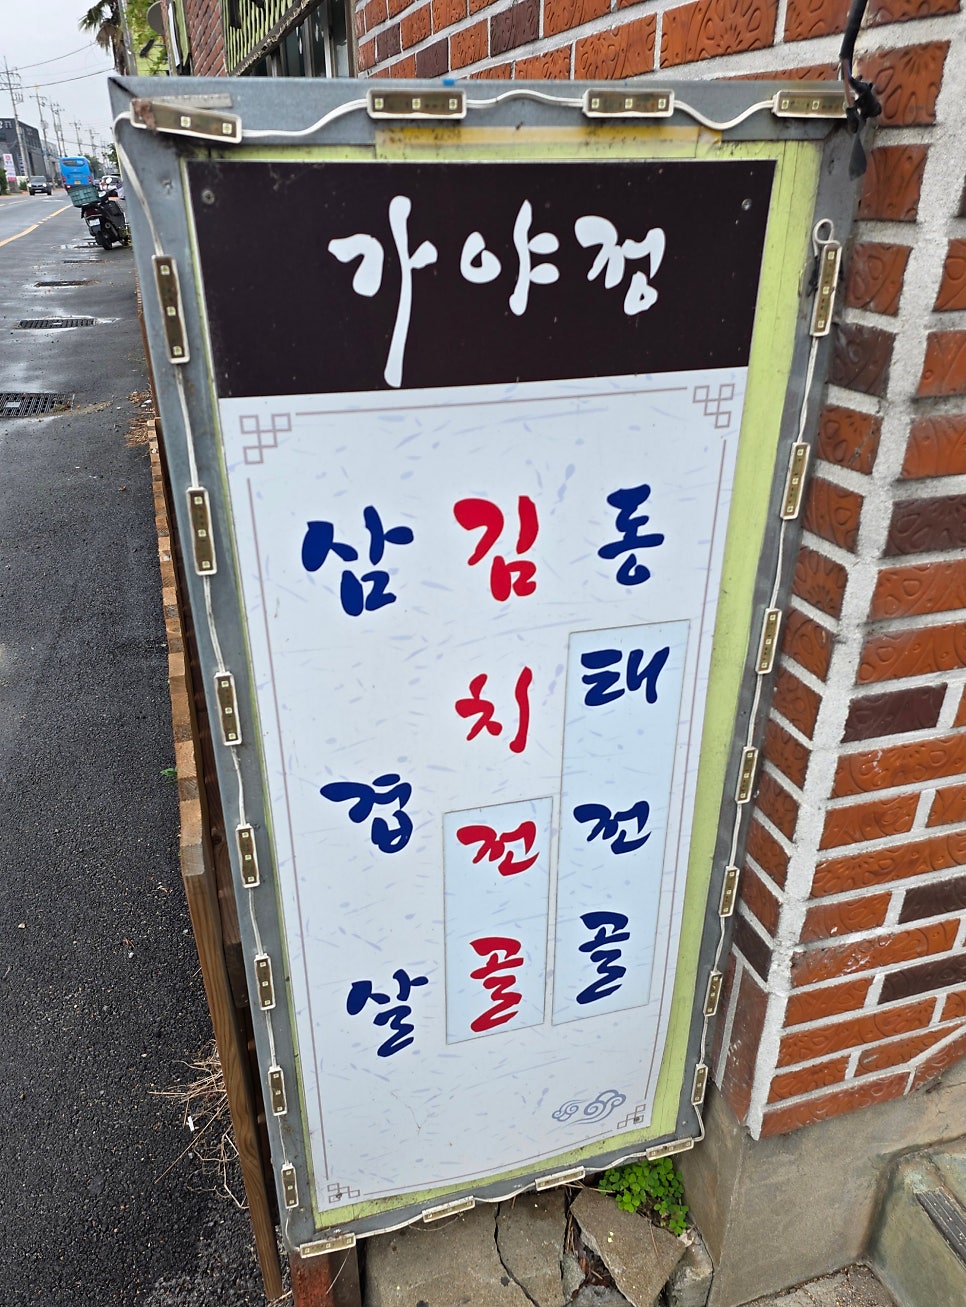 가야정
삼겹살
김치전골
동태전골